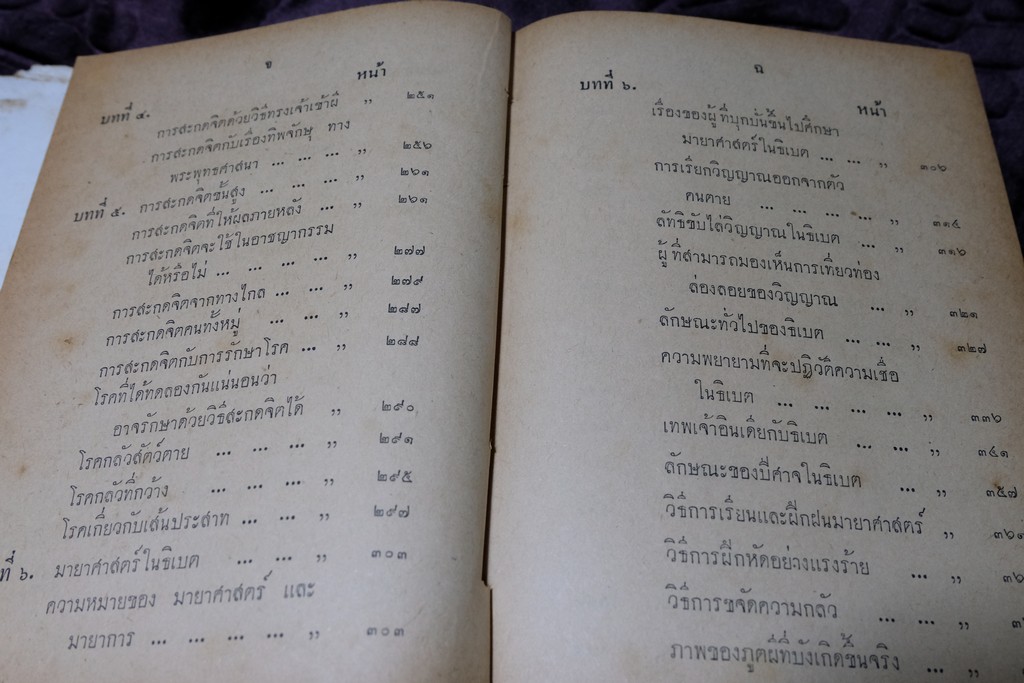 จ
หน้า
บทที่ ๔.
การสะกดจิตด้วยวิธีทรงเจ้าเข้าผี ,, ๒๕๑
การสะกดจิตกับเรื่องทิพจักษุ ทาง
พระพุทธศาสนา ... ... ... ,, ๒๕๖
บทที่ ๕. การสะกดจิตขั้นสูง ... ... ... ,, ๒๖๑
การสะกดจิตที่ให้ผลภายหลัง ... ,, ๒๖๑
การสะกดจิตจะใช้ในอาชญากรรม
ได้หรือไม่ ... ... ... ... ,, ๒๗๗
การสะกดจิตจากทางไกล ... ... ,, ๒๗๙
การสะกดจิตคนทั้งหมู่ ... ... ,, ๒๘๗
การสะกดจิตกับการรักษาโรค ... ,, ๒๘๘
โรคที่ได้ทดลองกันแน่นอนว่า
อาจรักษาด้วยวิธีสะกดจิตได้ ,, ๒๙๐
โรคกลัวสัตว์ตาย ... ... ... ,, ๒๙๑
โรคกลัวที่กว้าง ... ... ... ,, ๒๙๕
โรคเกี่ยวกับเส้นประสาท ... ... ,, ๒๙๗
ที่ ๖. มายาศาสตร์ในธิเบต ... ... ,, ๓๐๓
ความหมายของ มายาศาสตร์ และ
มายาการ ... ... ... ... ,, ๓๐๓
ฉ
บทที่ ๖.
หน้า
เรื่องของผู้ที่บุกบั่นขึ้นไปศึกษา
มายาศาสตร์ในธิเบต ... ... ,, ๓๐๖
การเรียกวิญญาณออกจากตัว
คนตาย ... ... ... ... ,, ๓๑๔
ลัทธิขับไล่วิญญาณในธิเบต ... ,, ๓๑๖
ผู้ที่สามารถมองเห็นการเที่ยวท่อง
ล่องลอยของวิญญาณ ... ,, ๓๒๑
ลักษณะทั่วไปของธิเบต ... ... ,, ๓๒๗
ความพยายามที่จะปฏิวัติความเชื่อ
ในธิเบต ... ... ... ... ,, ๓๓๖
เทพเจ้าอินเดียกับธิเบต ... ... ,, ๓๔๑
ลักษณะของปีศาจในธิเบต ... ,, ๓๕๗
วิธีการเรียนและฝึกฝนมายาศาสตร์ ,, ๓๖๑
วิธีการฝึกหัดอย่างแรงร้าย ... ,,
วิธีการขจัดความกลัว ... ... ,,
ภาพของภูตผีที่บังเกิดขึ้นจริง ... ,,